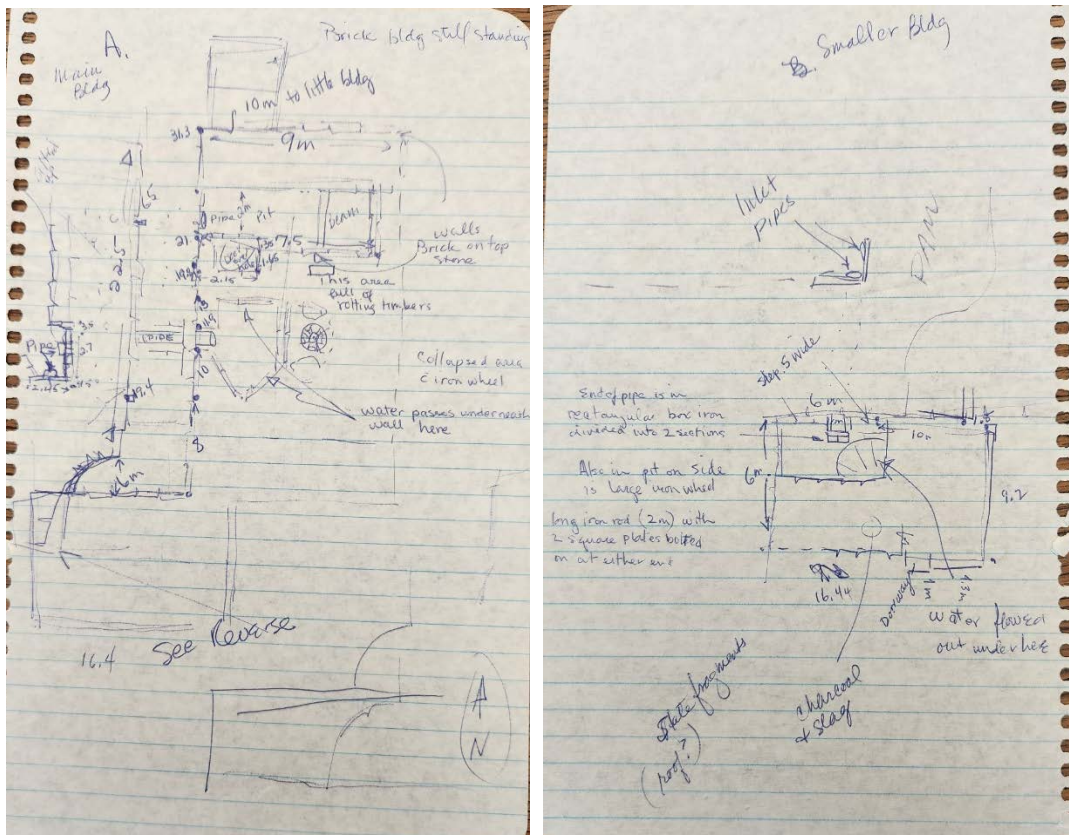 A.
Main
Bldg
Brick bldg still standing
10m to little bldg
31.3
9m
65
22.5
Pipe
2m
Pit
BEAM
21
7.5
1.45
2.15
walls
Brick on top
stone
This area
full of
rotting timbers
PIPE
11.9
10
Collapsed area
c iron wheel
water passes underneath
wall here
Pipe
.35
2.7
2.45
.45
19.4
8
6m
See Reverse
16.4
N
B. Smaller Bldg
Inlet
Pipes
DAM
step .5 wide
End of pipe is in
rectangular box iron
divided into 2 sections
6m
10m
Also in pit on side
is large iron wheel
6m
9.2
long iron rod (2m) with
2 square plates bolted
on at either end
16.44
Doorway
1m
1.3m
water flowed
out under here
Slate fragments
(roof?)
charcoal
+ slag